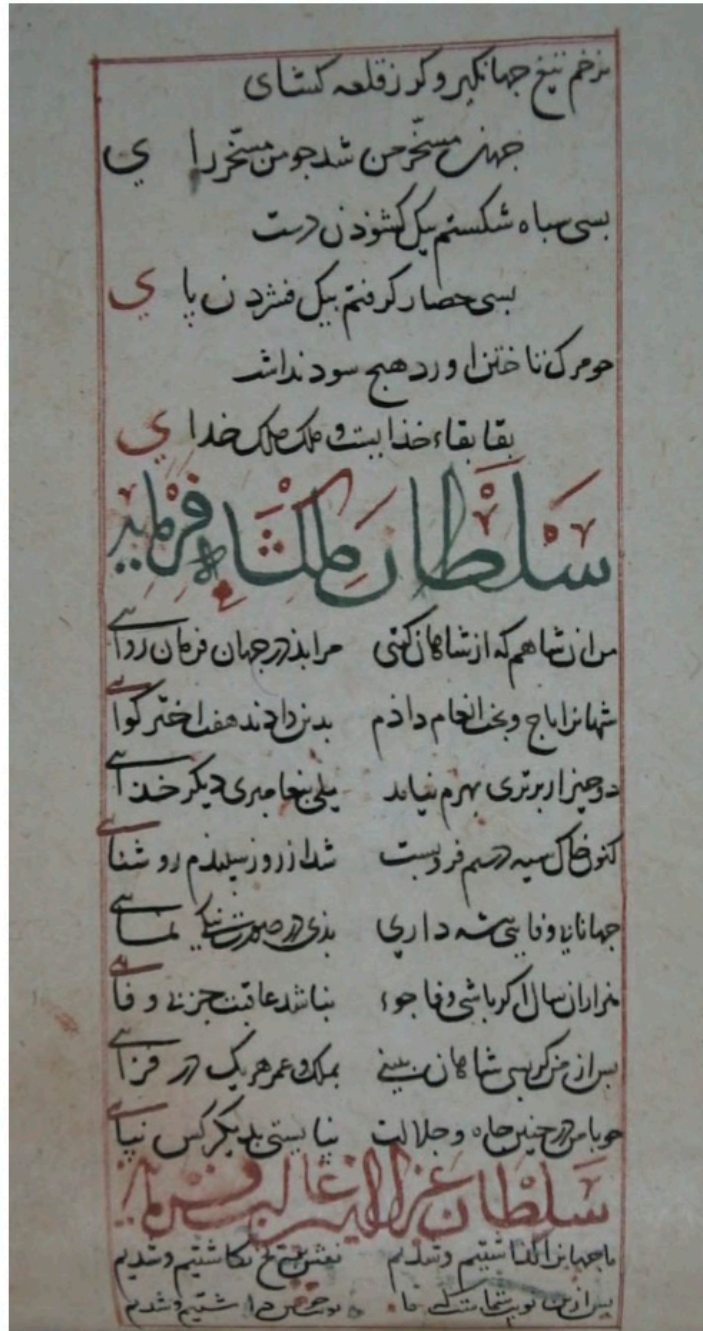 بزخم تیغ جهانکیر و کرز قلعه کشای
جهان مسخّر من شد جو من مسخّر رای
بسی سباه شکستم بیک کشوذن دست
بسی حصار کرفتم بیک فشردن پای
جو مرک تاختن اورد هیج سود نداشت
بقا بقاء خذایست و ملک ملک خدای
سلطان ملکشاه فرماید
من ان شاهم که از شاهان کیتی مرا بذ در جهان فرمان روایی
شهانرا باج و تخت انعام داذم بدین دادند هفت اختر کوایی
دو جیز از برتری بهرم نیامد یکی بیغامبری دیکر خذایی
کنون خاک سیه جشمم فروبست شد از روز سبیدم روشنایی
جهانا بی وفایی بیشه داری بذی در صورت نیکی نمایی
هزاران سال اکر باشی وفا جوء نباشد عاقبت جز بی وفایی
بس از من کر بسی شاهان ببینی بملک و عمر هر یک در فزایی
جو با من در جنین جاه و جلالت نبایستی بدیکر کس نبایی
سلطان عزالدین غالب فرماید
ما جهانرا کذاشتیم و شدیم نقش رنج کاشتیم و شدیم
بس ازین نوبت شماست که ما نوبت خویش داشتیم و شدیم